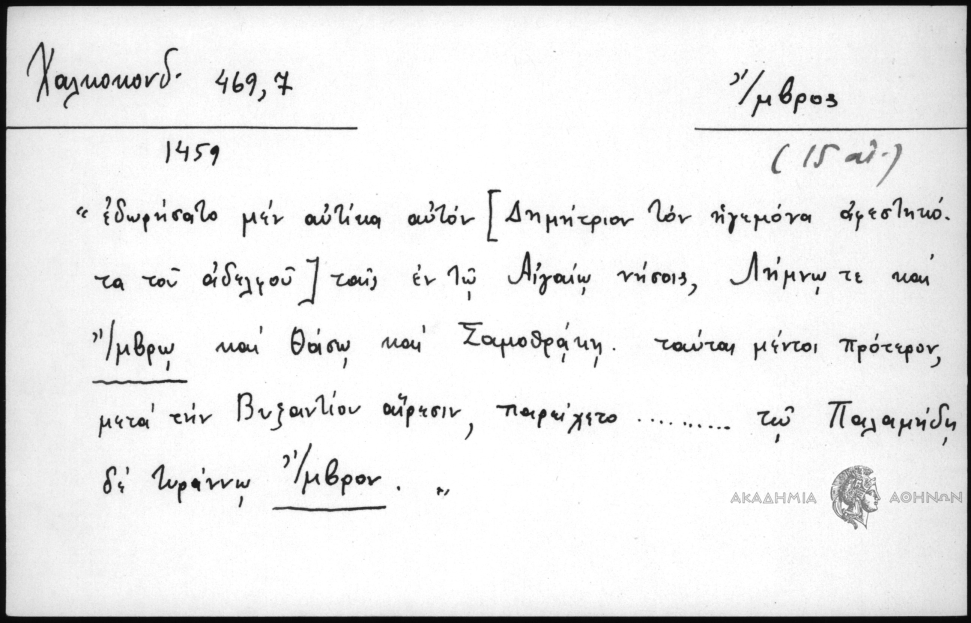 Χαλκοκονδ. 469,7
Ἴμβρος
1459
(15 αἰ.)
"ἐδωρήσατο μέν αὐτίκα αὐτόν [Δημήτριον τόν ἡγεμόνα ἀφεστηκό-
τα τοῦ ἀδελφοῦ] ταῖς ἐν τῷ Αἰγαίῳ νήσοις, Λήμνῳ τε καί
Ἴμβρῳ καί Θάσῳ καί Σαμοθρᾴκῃ. ταύτας μέντοι πρότερον,
μετά τήν Βυζαντίου αἵρεσιν, παρείχετο .......... τῷ Παλαμήδῃ
δέ τυράννῳ Ἴμβρον. "
ΑΚΑΔΗΜΙΑ ΑΘΗΝΩΝ